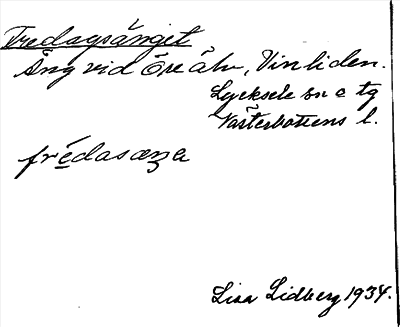 Fredagsänget
Äng vid Öre älv, Vinliden.
Lycksele sn o tg
Västerbottens l.
frédasæŋe
Lisa Lidberg 1934.